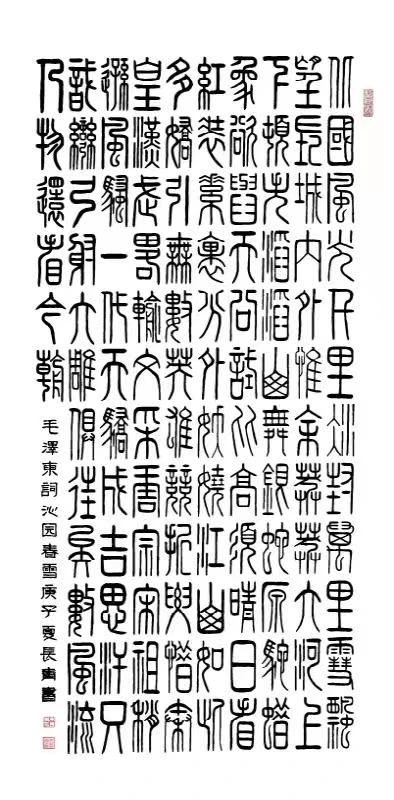 北國風光千里冰封萬里雪飄
望長城內外惟余莽莽大河上
下頓失滔滔山舞銀蛇原馳蜡
象欲與天公試比高須晴日看
紅裝素裹分外妖嬈江山如此
多嬌引無數英雄競折腰惜秦
皇漢武略輸文采唐宗宋祖稍
遜風騷一代天驕成吉思汗只
識彎弓射大雕俱往矣數風流
人物還看今朝
毛澤東詞沁园春雪庚子夏長寅書